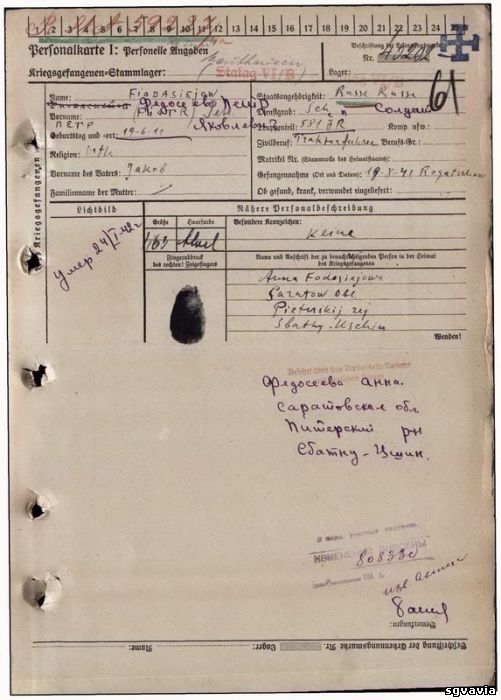 1 2 3 4 5 6 7 8 9 10 11 12 13 14 15 16 17 18 19 20 21 22 23 24 25
Personalkarte I: Personelle Angaben
Mauthausen
Beschriftung der Erkennungsmarke
Nr.
Kriegsgefangenen-Stammlager: Stalag VI/B
Lager:
61
Name: FIODASIEJOW
Федосеев Петр
Staatsangehörigkeit: Russe Russe
Vorname: PIOTR
ПЕТР Яковлевич
Dienstgrad: Sch. Солдат
Truppenteil: 581 JR Komp. usw.:
Geburtstag und -ort: 19.6.11
Zivilberuf: Traktorführer Berufs-Gr.:
Religion: Orth
Matrikel Nr. (Stammrolle des Heimatstaates):
Vorname des Vaters: Jakob
Gefangennahme (Ort und Datum): 19.8.41 Rogatschow
Familienname der Mutter:
Ob gesund, krank, verwundet eingeliefert:
des Kriegsgefangenen
Lichtbild
Nähere Personalbeschreibung
Größe
Haarfarbe
Besondere Kennzeichen:
keine
умер 24/I 42 г
Fingerabdruck
des rechten! Zeigefingers
Name und Anschrift der zu benachrichtigenden Person in der Heimat
des Kriegsgefangenen
Anna Fodosiejowa
Saratow Obl.
Pieterskij rej
Sbatny-Uschin
Wenden!
Belehrt über das Verbot
Федосеева Анна.
Саратовская обл
Питерский рн
Сбатну-Ушин.
ИЗМЕНЕНИЯ ВНЕСЕНЫ
808330
Bemerkungen:
Beschriftung der Erkennungsmarke Nr.
Lager:
Name:
sgvavia